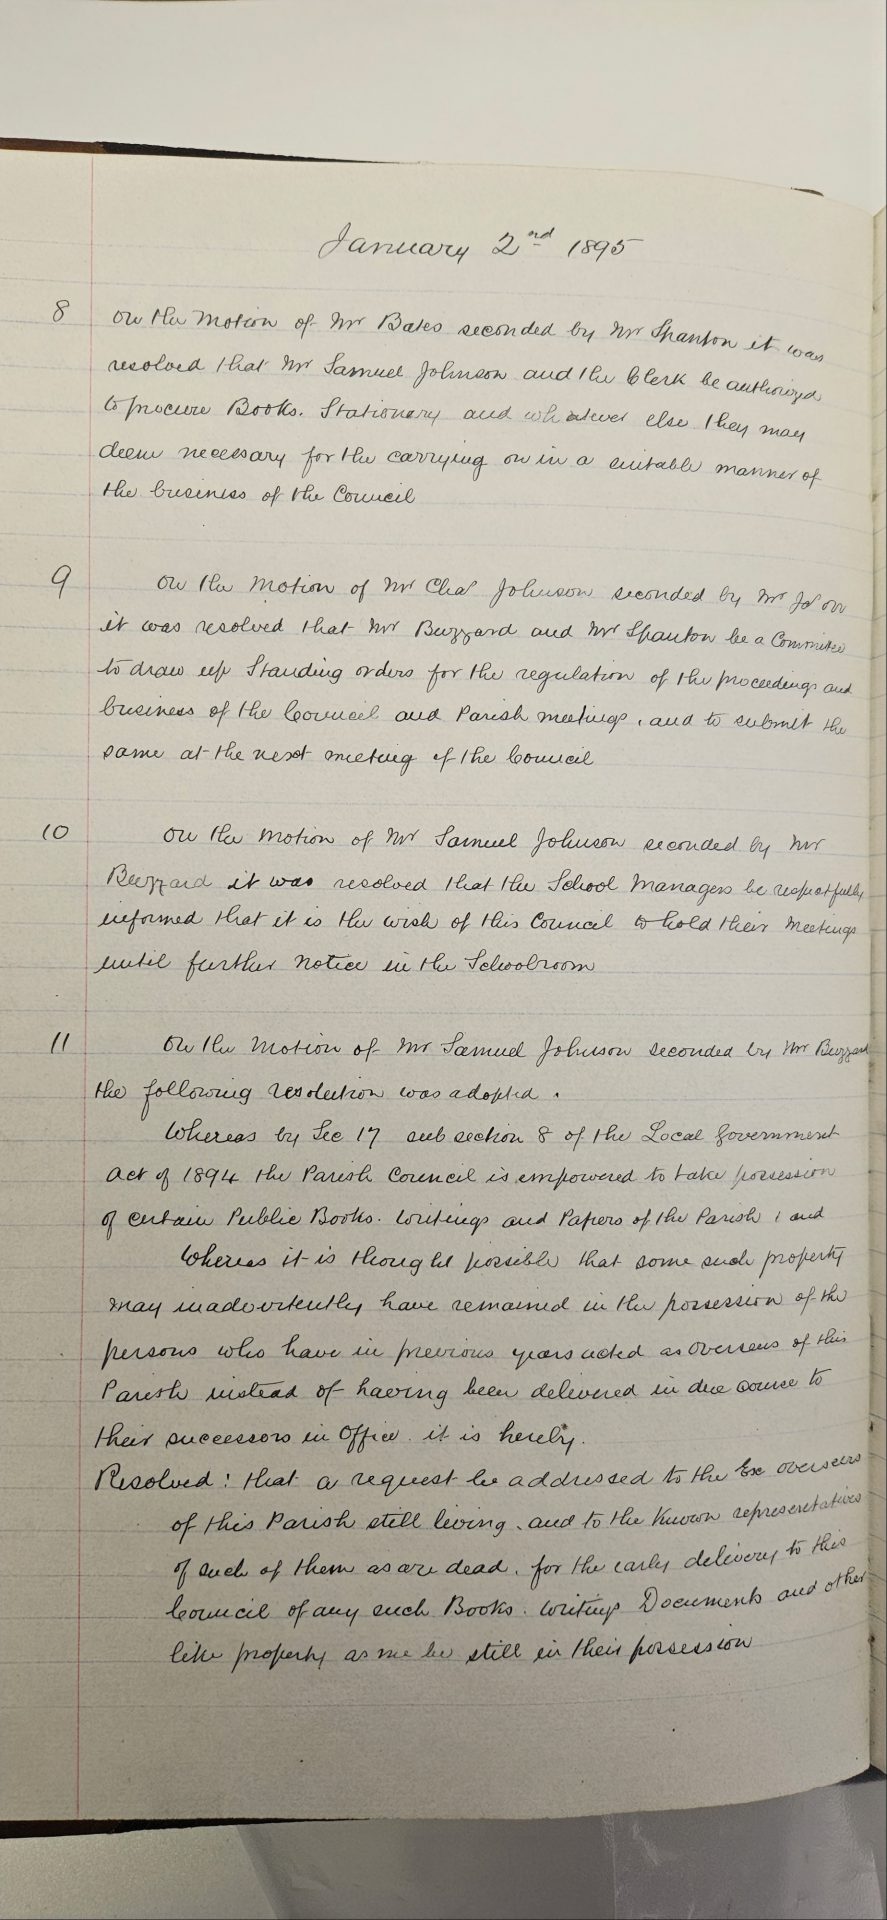 January 2nd 1895
8 On the Motion of Mr Bates seconded by Mr Spanton it was
resolved that Mr Samuel Johnson and the Clerk be authorized
to procure Books. Stationary and whatever else they may
deem necessary for the carrying on in a suitable manner of
the business of the Council
9 On the Motion of Mr Chas Johnson seconded by Mr
it was resolved that Mr Buzzard and Mr Spanton be a Committee
to draw up Standing orders for the regulation of the proceedings and
business of the Council and Parish meetings, and to submit the
same at the next meeting of the Council
10 On the Motion of Mr Samuel Johnson seconded by Mr
Buzzard it was resolved that the School Managers be respectfully
informed that it is the wish of this Council to hold their Meetings
until further Notice in the Schoolroom
11 On the Motion of Mr Samuel Johnson seconded by Mr Buzzard
the following resolution was adopted.
Whereas by Sec 17 sub section 8 of the Local Government
Act of 1894 the Parish Council is empowered to take possession
of certain Public Books. Writings and Papers of the Parish, and
Whereas it is thought possible that some such property
may inadvertently have remained in the possession of the
persons who have in previous years acted as Overseers of this
Parish instead of having been delivered in due course to
their successors in Office. it is hereby.
Resolved: that a request be addressed to the Ex overseers
of this Parish still living, and to the Known representatives
of such of them as are dead, for the early delivery to this
Council of any such Books. Writings Documents and other
like property as me be still in their possession